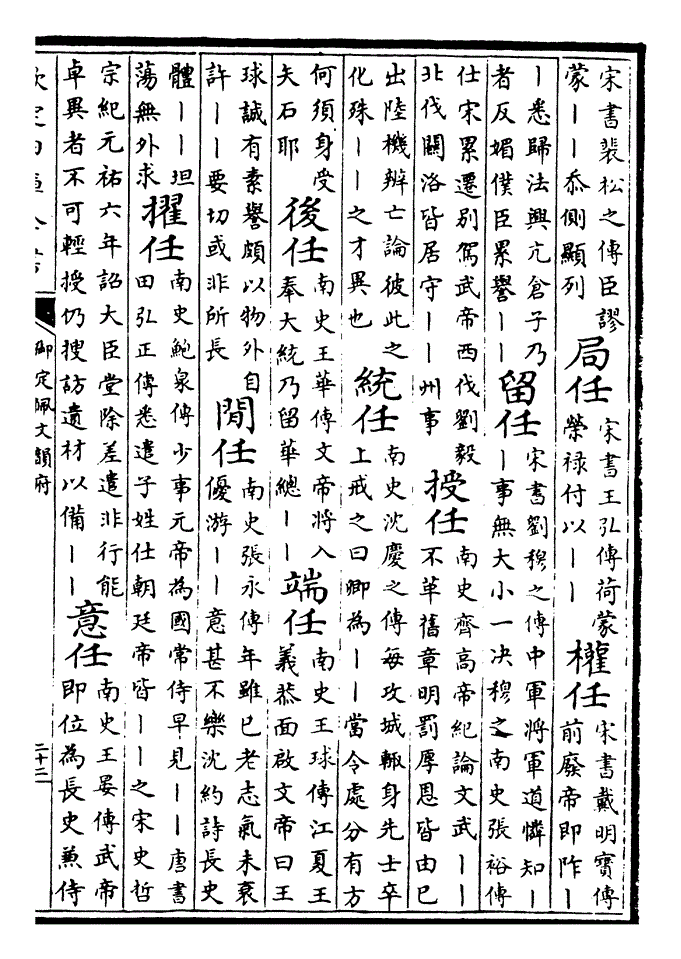 宋書裴松之傳臣謬
蒙丨丨忝側顯列
局任
宋書王弘傳荷蒙
榮祿付以丨丨
權任
宋書戴明寶傳
前廢帝即阼丨
丨悉歸法興亢倉子乃
者反媚僕臣累譽丨丨
留任
宋書劉穆之傳中軍將軍道憐知丨
丨事無大小一決穆之南史張裕傳
仕宋累遷別駕武帝西伐劉毅
北伐關洛皆居守丨丨州事
授任
南史齊高帝紀論文武丨丨
不革舊章明罰厚恩皆由已
出陸機辨亡論彼此之
化殊丨丨之才異也
統任
南史沈慶之傳每攻城輒身先士卒
上戒之曰卿為丨丨當令處分有方
何須身受
矢石耶
後任
南史王華傳文帝將入
奉大統乃留華總丨丨
端任
南史王球傳江夏王
義恭面啟文帝曰王
球誠有素譽頗以物外自
許丨丨要切或非所長
閒任
南史張永傳年雖已老志氣未衰
優游丨丨意甚不樂沈約詩長史
體丨丨坦
蕩無外求
擢任
南史鮑泉傳少事元帝為國常侍早見丨丨唐書
田弘正傳悉遣子姓仕朝廷帝皆丨丨之宋史哲
宗紀元祐六年詔大臣堂除差遣非行能
卓異者不可輕授仍搜訪遺材以備丨丨
意任
南史王晏傳武帝
即位為長史兼侍
欽定四庫全書
御定佩文韻府